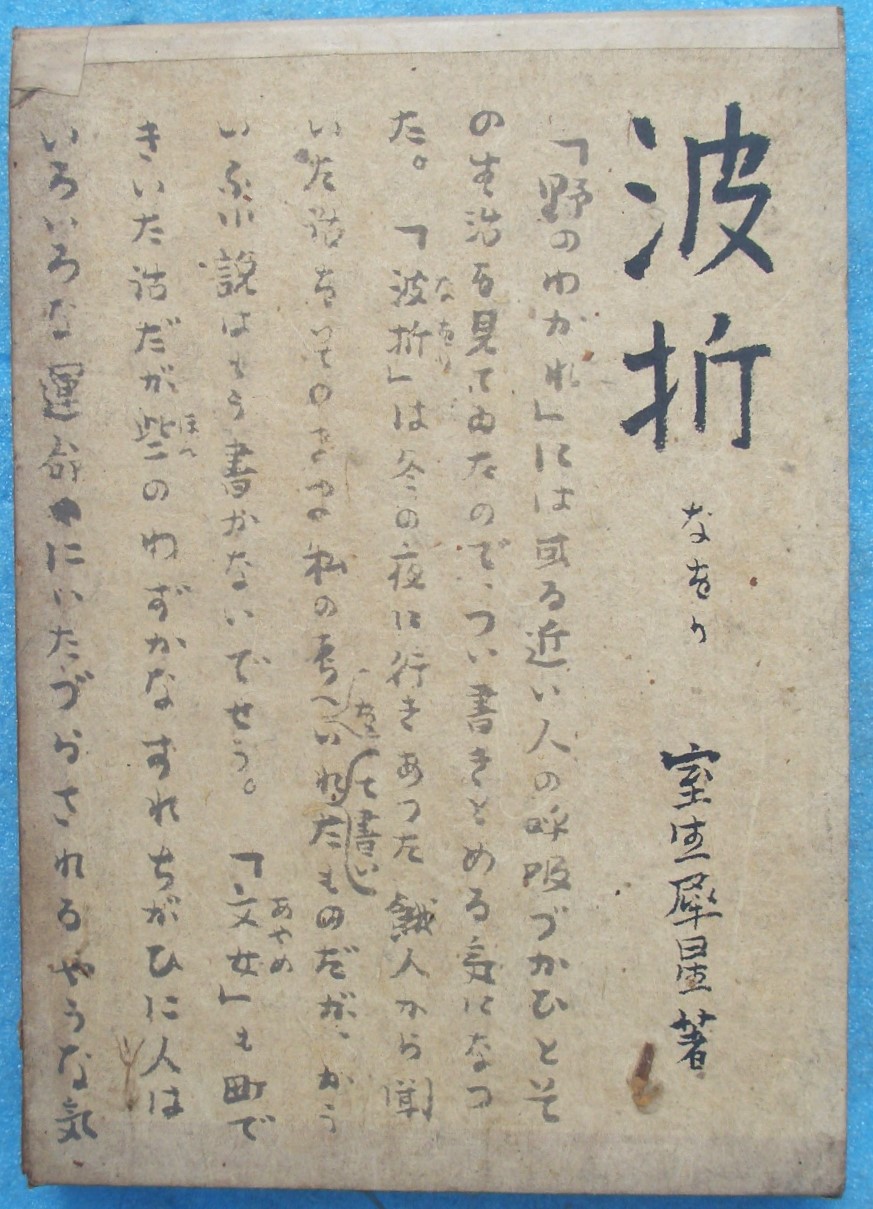 波折
なをり
室生犀星著
「野のわかれ」には或る近い人の呼吸づかひとそ
の生活を見てゐたので、つい書きとめる気になつ
た。「波折」は冬の夜に行きあつた餓人から聞
なをり
いた話をそのまま私の考へいれたものだが、かう
を
て書い
いふ小説はもう書かないでせう。「文女」も町で
あやめ
きいた話だが些のわずかなすれちがひに人は
ほん
いろいろな運命にいたづらされるやうな気